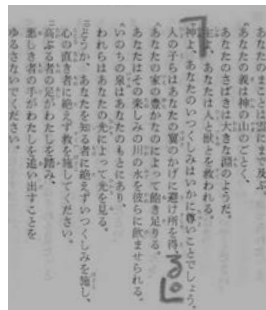 あなたのまことは雲にまで及ぶ。
あなたの義は神の山のごとく、
あなたのさばきは大きな淵のようだ。
主よ、あなたは人と獣とを救われる。
神よ、あなたのいつくしみはいかに尊いことでしょう。
人の子らはあなたの翼のかげに避け所を得、
あなたの家の豊かなのによって飽き足りる。
あなたはその楽しみの川の水を彼らに飲ませられる。
いのちの泉はあなたのもとにあり、
われらはあなたの光によって光を見る。
どうか、あなたを知る者に絶えずいつくしみを施し、
心の直き者に絶えず救を施してください。
高ぶる者の足がわたしを踏み、
悪しき者の手がわたしを追い出すことを
ゆるさないでください。